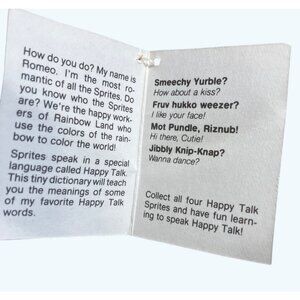 How do you do? My name is
Romeo. I'm the most ro-
mantic of all the Sprites. Do
you know who the Sprites
are? We're the happy work-
ers of Rainbow Land who
use the colors of the rain-
bow to color the world!
Sprites speak in a special
language called Happy Talk.
This tiny dictionary will teach
you the meanings of some
of my favorite Happy Talk
words.
Smeechy Yurble?
How about a kiss?
Fruv hukko weezer?
I like your face!
Mot Pundle, Riznub!
Hi there, Cutie!
Jibbly Knip-Knap?
Wanna dance?
Collect all four Happy Talk
Sprites and have fun learn-
ing to speak Happy Talk!